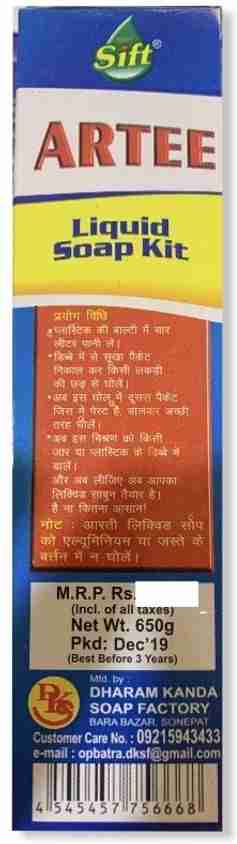 Sift®
ARTEE
Liquid
Soap Kit
प्रयोग विधि
•प्लास्टिक की बाल्टी में चार
लीटर पानी लें।
•डिब्बे में से सूखा पैकेट
निकाल कर किसी लकड़ी
की छड़ से घोलें।
•अब इस घोल में दूसरा पैकेट
जिस में पेस्ट है, डालकर अच्छी
तरह घोलें।
•अब इस मिश्रण को किसी
जार या प्लास्टिक के डिब्बे में
डालें।
और अब लीजिए अब आपका
लिक्विड साबुन तैयार है।
है ना कितना आसान!
नोट : आरती लिक्विड सोप
को एल्यूमिनियम या जस्ते के
बर्तन में न घोलें।
M.R.P. Rs.
(Incl. of all taxes)
Net Wt. 650g
Pkd: Dec'19
(Best Before 3 Years)
DKS
Mfd. by :
DHARAM KANDA
SOAP FACTORY
BARA BAZAR, SONEPAT
Customer Care No. : 09215943433
e-mail : opbatra.dksf@gmail.com
4 545457 756668